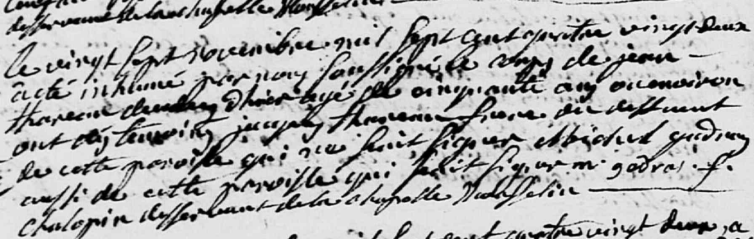 desservant de la chapelle Montselin
le vingt sept novembre mil sept cent quatre vingt deux
a été inhumé par nous soussigné le corps de jean
thareau agé de cinquante ans ou environ
ont été temoins jacques thareau frere du deffunt
de cette paroisse qui ne sait signer et michel gadras
aussi de cette paroisse qui sait signer m: gadras f.
chalopin desservant de la chapelle
cent quatre vingt deux a